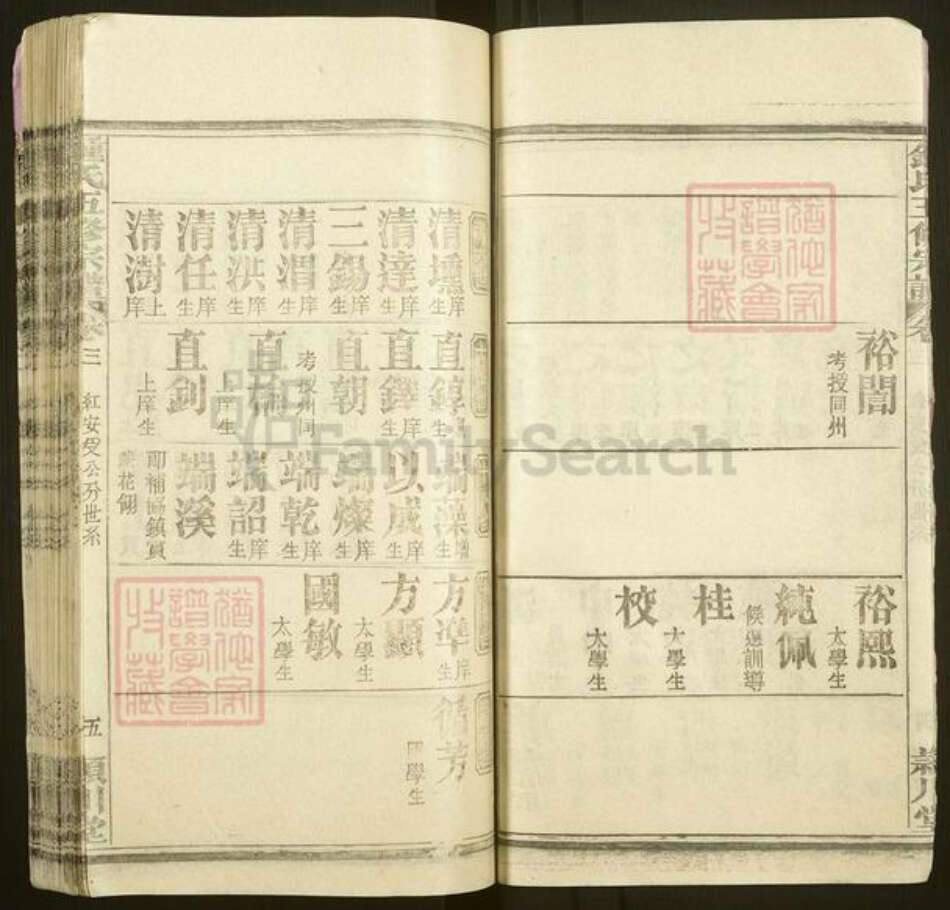 裕誾
考授同州
裕熙
太學生
純佩
候選訓導
桂
太學生
校
太學生
清壎
庠生
清達
庠生
三錫
庠生
清渭
庠生
清洪
庠生
清任
庠生
清澍
上庠
直錞
直鐸
庠生
直朝
考授州同
直
庠生
直釗
上庠生
端藻
以成
庠生
端燦
庠生
端乾
庠生
端詔
庠生
端溪
即補協鎮賞
花翎
方準
庠生
方顯
太學生
國敏
太學生
芳
國學生
鍾氏五修宗譜 卷三
紅安受公分世系
五
潁川堂
FamilySearch